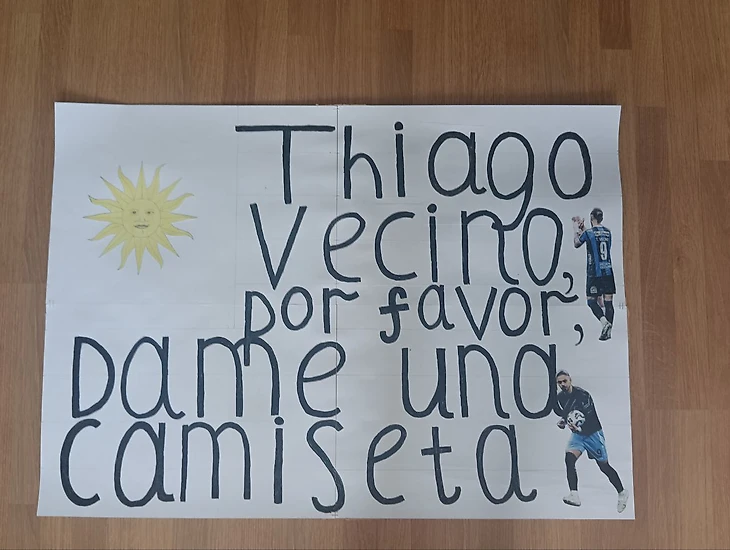 Thiago
Vecino,
por favor,
Dame una
camiseta
9